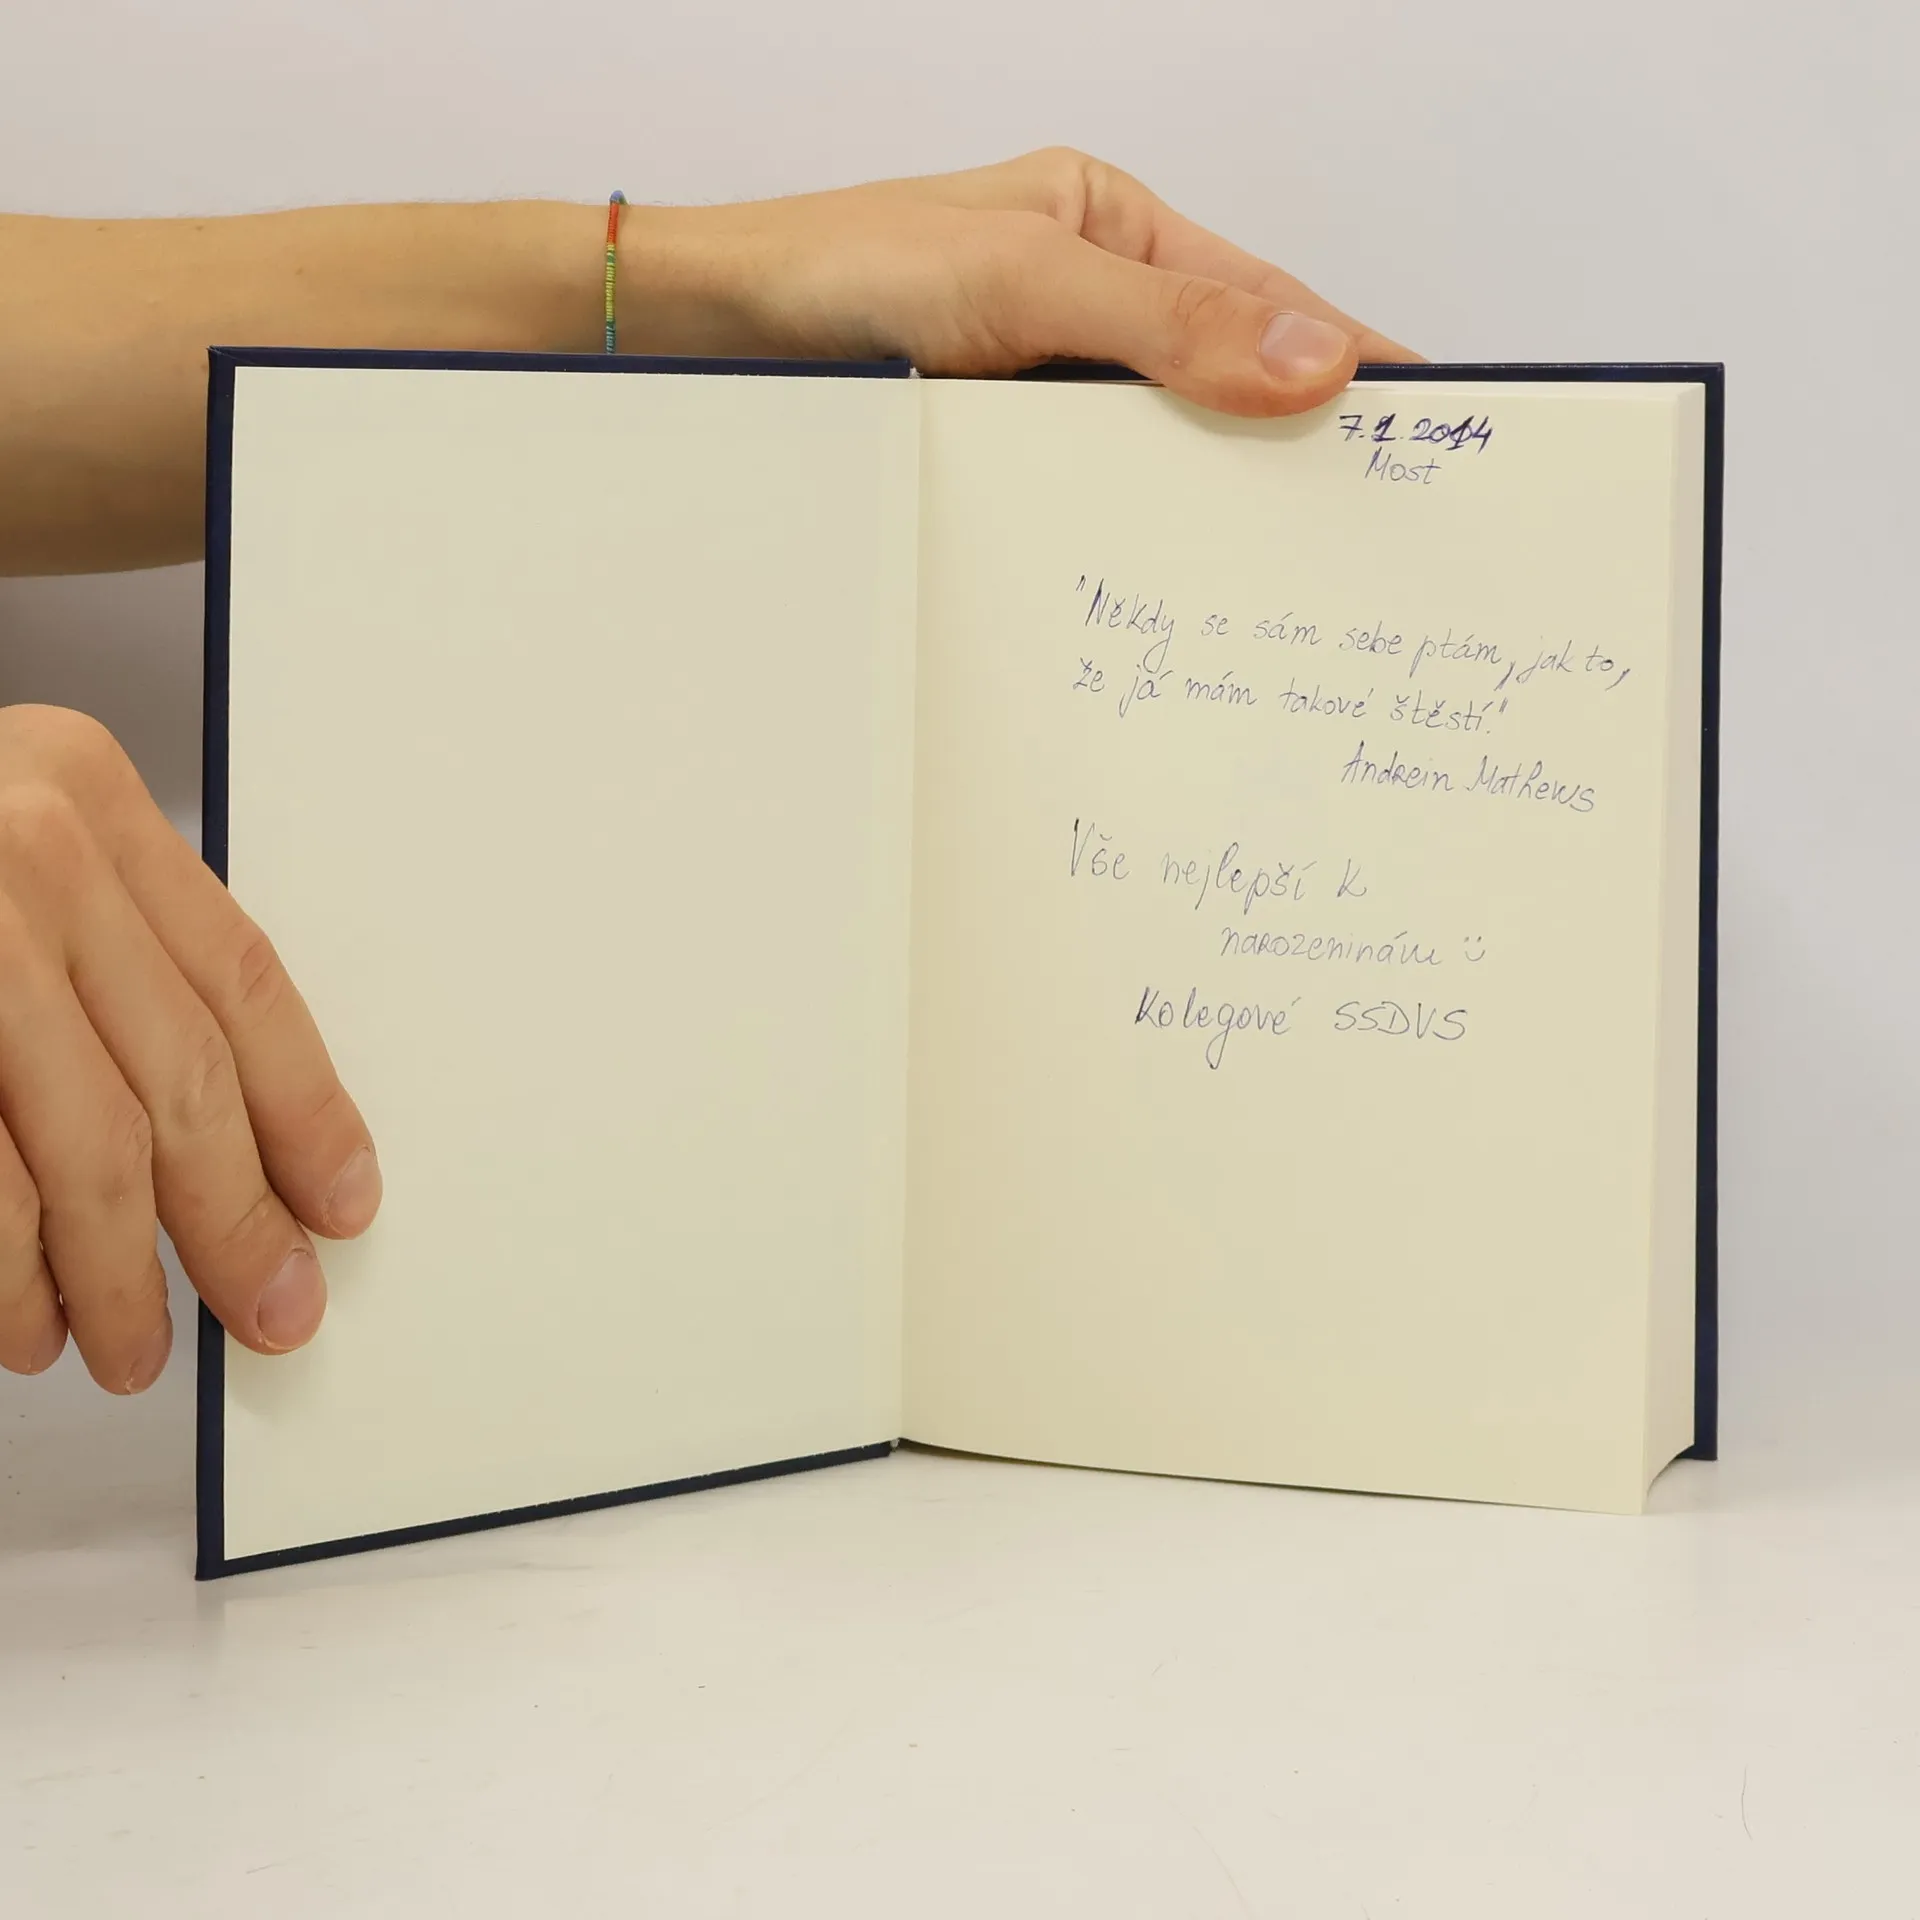 7.1.2014
Most
"Někdy se sám sebe ptám, jak to,
že já mám takové štěstí."
Andrein Mathews
Vše nejlepší k
narozeninám ☺
Kolegové SSDVS